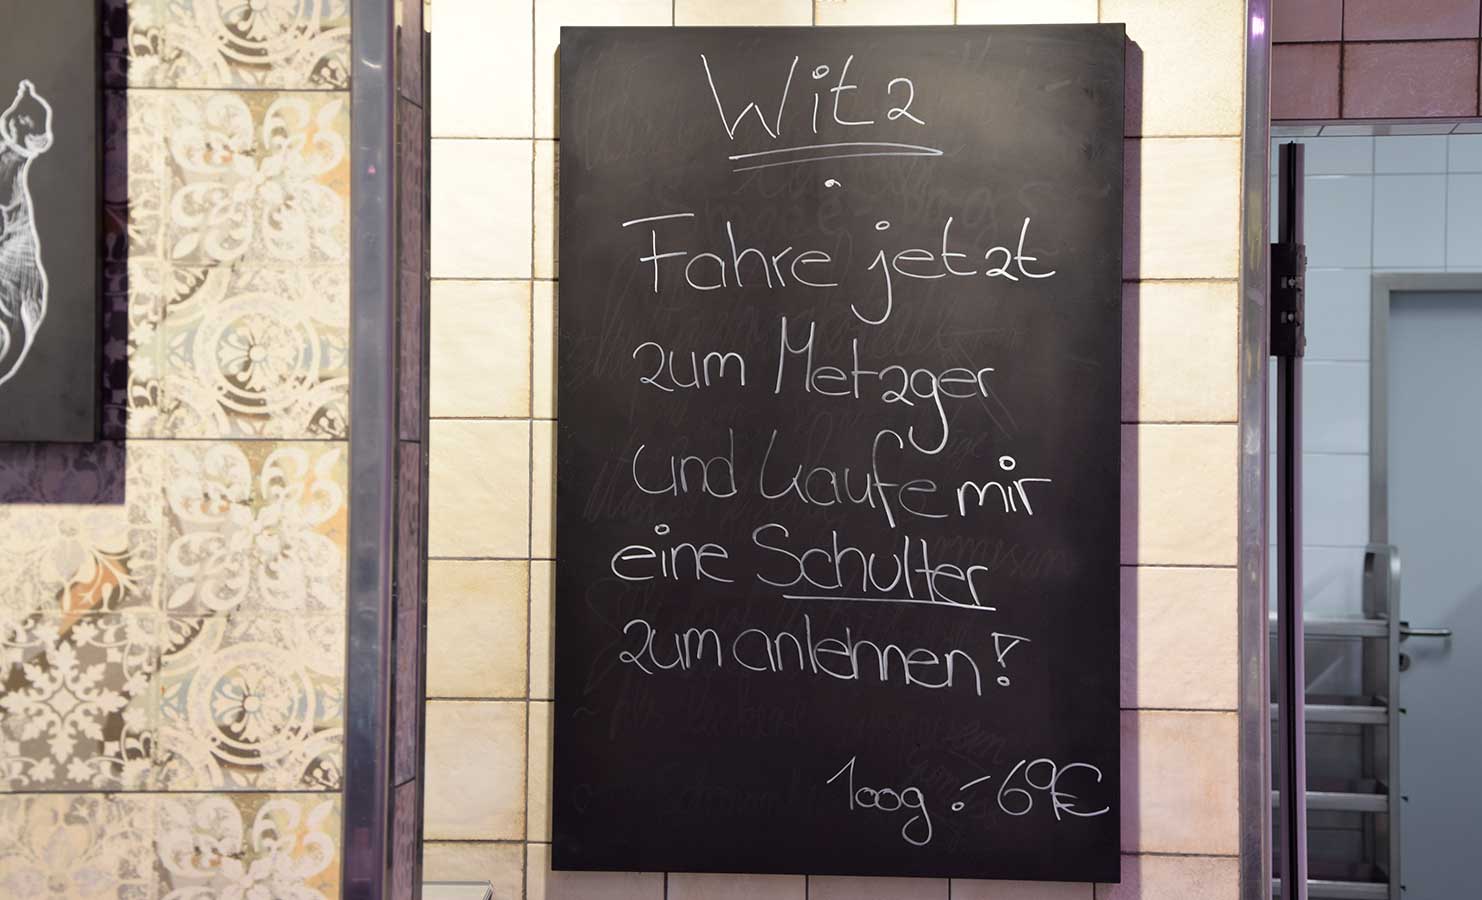 Witz
Fahre jetzt
zum Metzger
und kaufe mir
eine Schulter
zum anlehnen!
100g -.69€